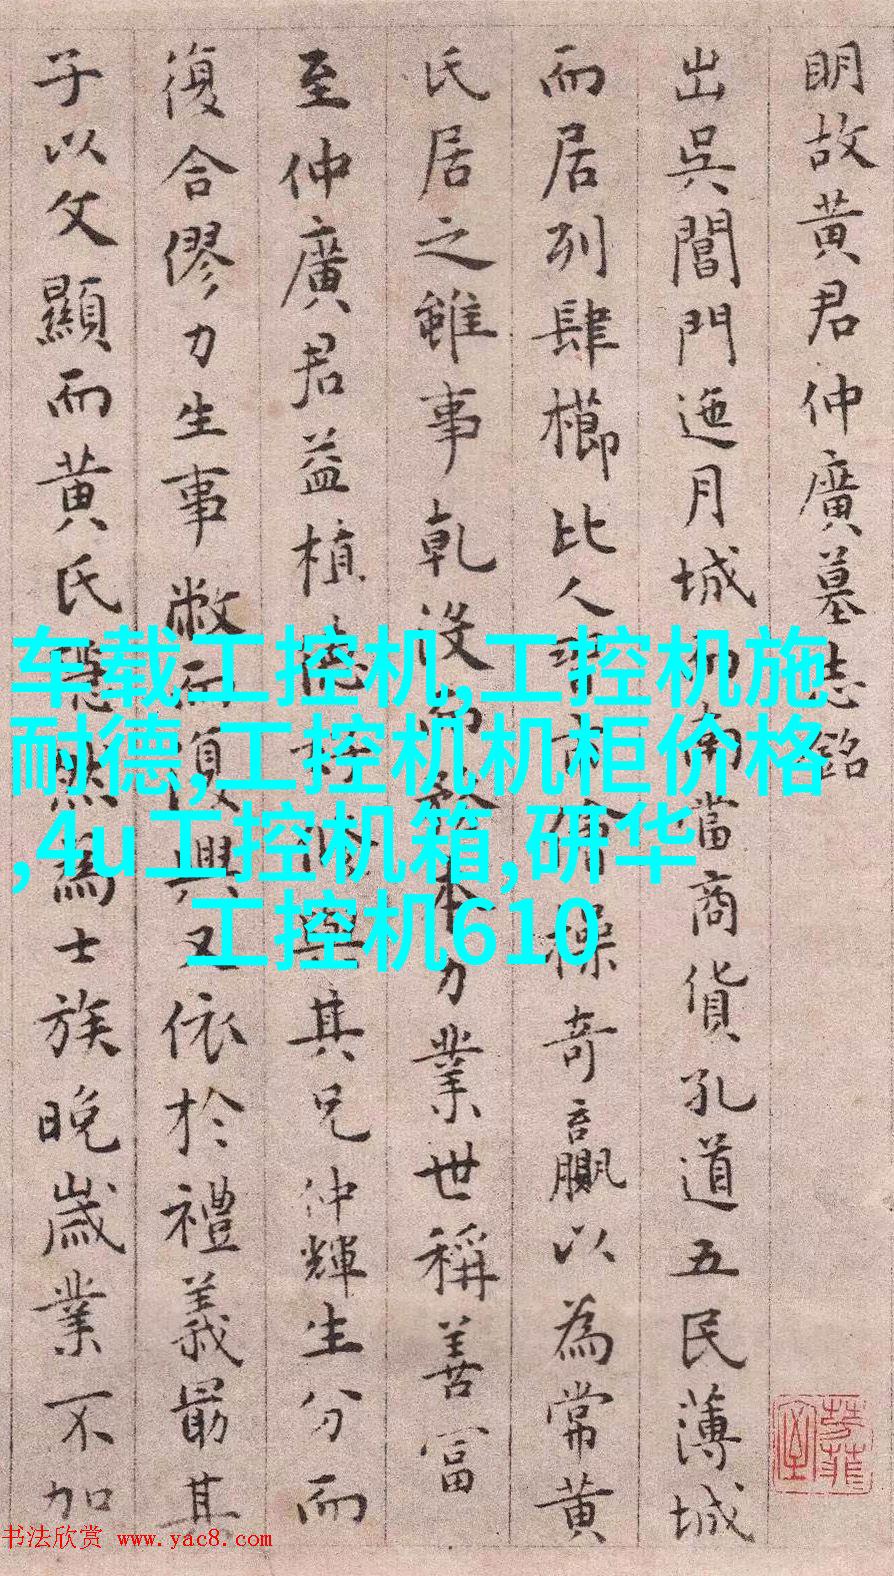 明故黄君仲廣墓志銘
出吳閶門迤月城而南當商貨孔道五民薄城
而居列肆櫛比人習市儈操奇贏以為常黄
氏居之雖事乾沒而務本力業世稱善富
至仲廣君益植德好脩與其兄仲輝生分而
復合僇力生事敝而復興又依於禮義最其
子以文顯而黄氏隱然為士族晚歲業不加
车载工控机,工控机施
耐德,工控机机柜价格
,4u工控机箱,研华
工控机610
书法欣赏 www.yac8.com